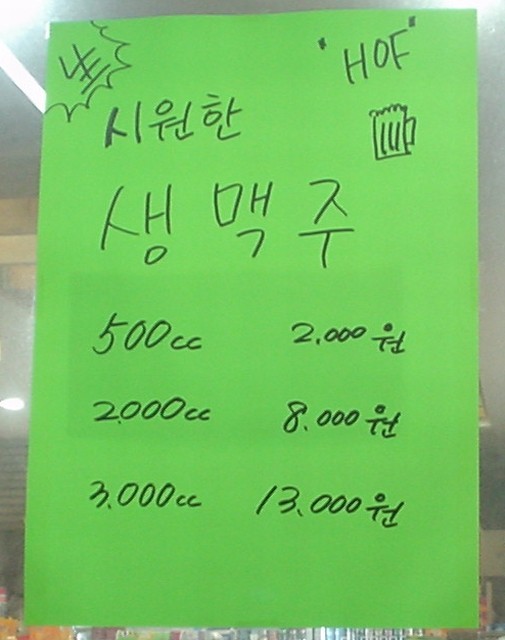 "HOF"
시원한
생맥주
500cc 2.000원
2000cc 8.000원
3.000cc 13.000원